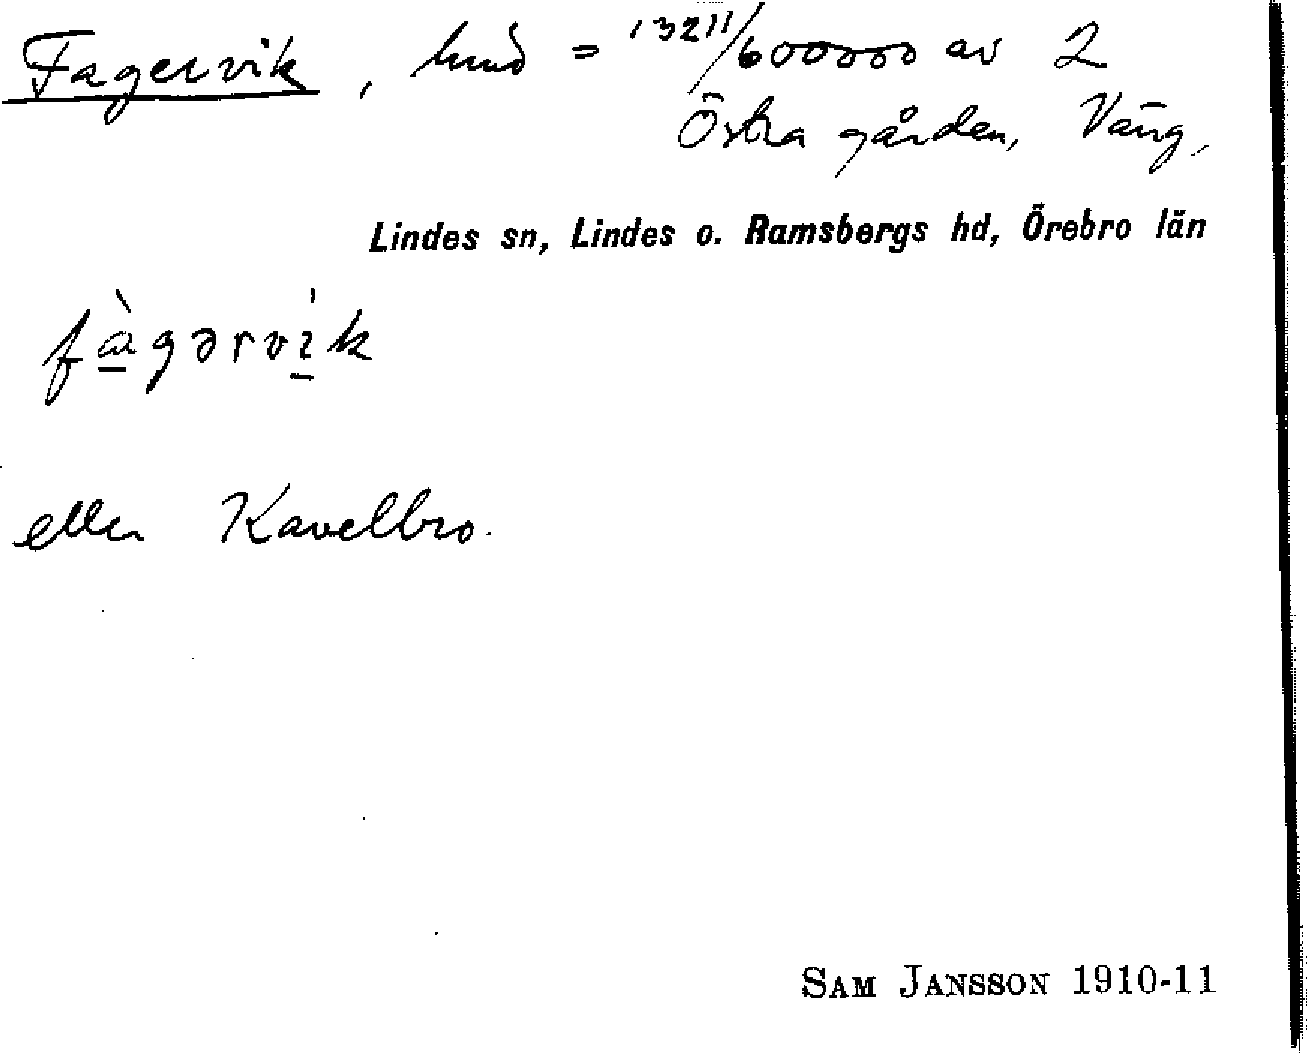 Fagervik, hmd = 13211/600000 av 2
Östra gården, Väng,
Lindes sn, Lindes o. Ramsbergs hd, Örebro län
fàgərvik
eller Kavelbro.
SAM JANSSON 1910-11